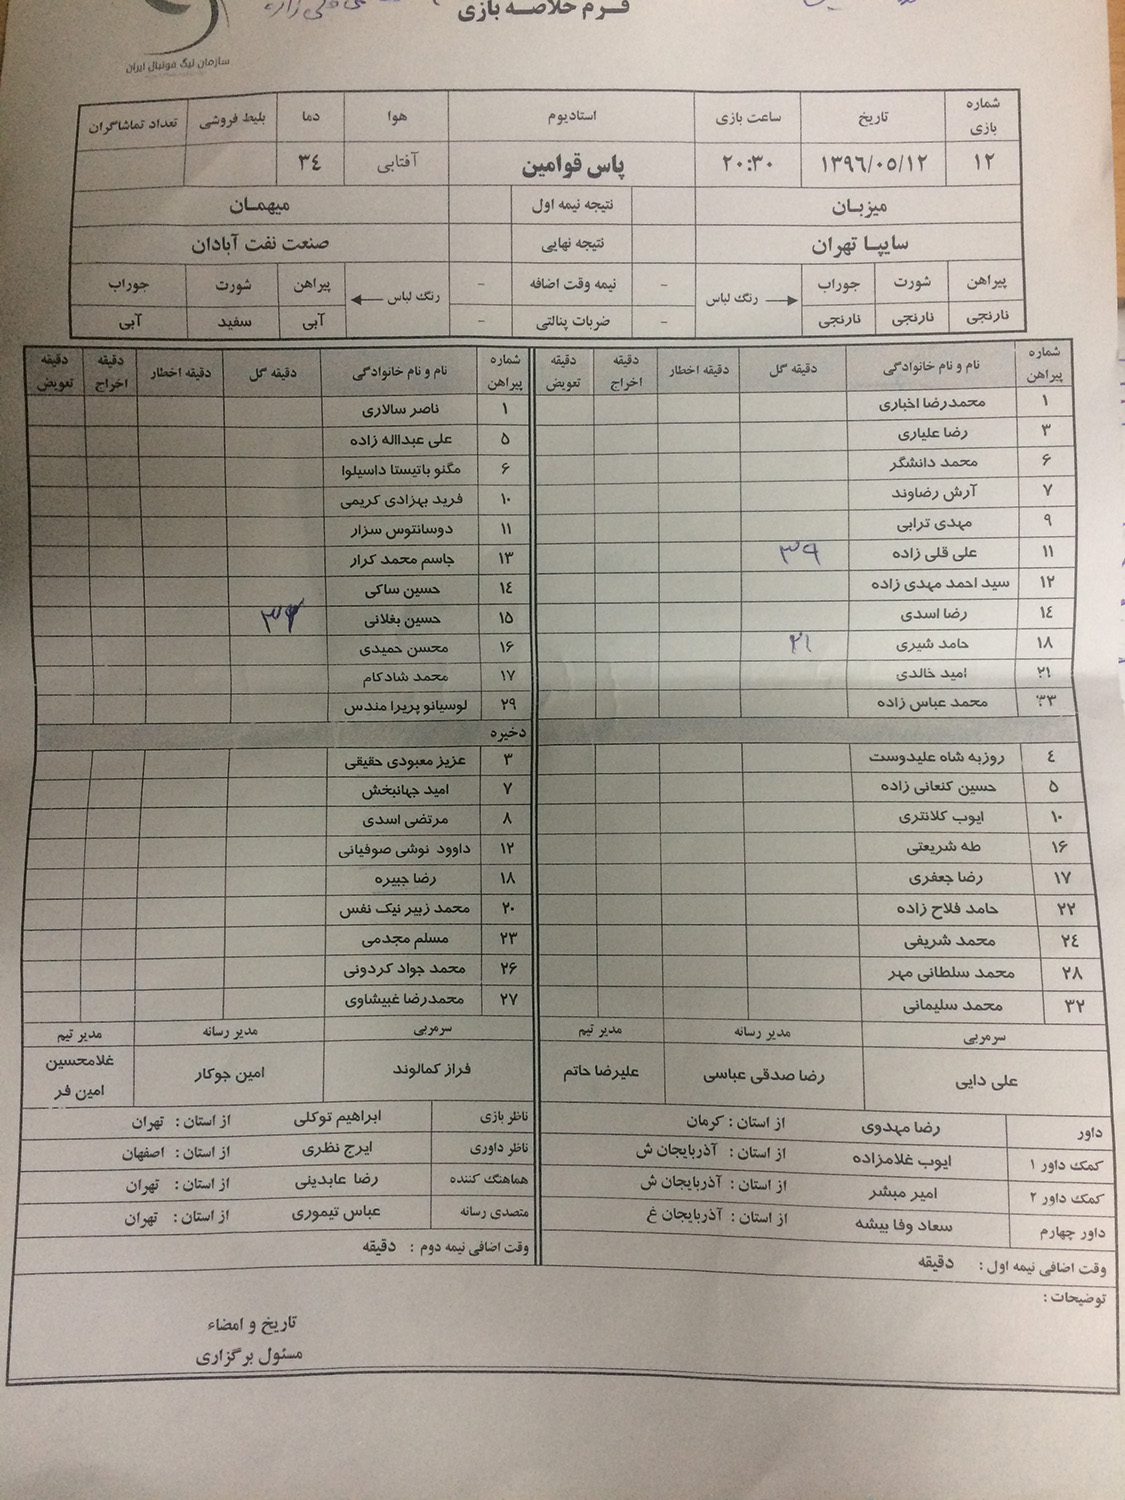 فرم خلاصه بازی
سازمان لیگ فوتبال ایران
شماره بازی	تاریخ	ساعت بازی	استادیوم	هوا	دما	بلیط فروشی	تعداد تماشاگران
۱۲	۱۳۹۶/۰۵/۱۲	۲۰:۳۰	پاس قوامین	آفتابی	۳۴
میزبان	نتیجه نیمه اول	میهمان
سایپا تهران	نتیجه نهایی	صنعت نفت آبادان
پیراهن	شورت	جوراب	رنگ لباس	-	نیمه وقت اضافه	-	رنگ لباس	پیراهن	شورت	جوراب
نارنجی	نارنجی	نارنجی	-	ضربات پنالتی	-	آبی	سفید	آبی
شماره پیراهن	نام و نام خانوادگی	دقیقه گل	دقیقه اخطار	دقیقه اخراج	دقیقه تعویض	شماره پیراهن	نام و نام خانوادگی	دقیقه گل	دقیقه اخطار	دقیقه اخراج	دقیقه تعویض
۱	محمدرضا اخباری	۱	ناصر سالاری
۳	رضا علیاری	۵	علی عبداله زاده
۶	محمد دانشگر	۶	مگنو باتیستا داسیلوا
۷	آرش رضاوند	۱۰	فرید بهزادی کریمی
۹	مهدی ترابی	۱۱	دوسانتوس سزار
۱۱	علی قلی زاده	۳۹	۱۳	جاسم محمد کرار
۱۲	سید احمد مهدی زاده	۱۴	حسین ساکی
۱۴	رضا اسدی	۱۵	حسین بغلانی
۱۸	حامد شیری	۲۱	۱۶	محسن حمیدی
۲۱	امید خالدی	۱۷	محمد شادکام
۳۳	محمد عباس زاده	۲۹	لوسیانو پریرا مندس
ذخیره
۴	روزبه شاه علیدوست	۳	عزیز معبودی حقیقی
۵	حسین کنعانی زاده	۷	امید جهانبخش
۱۰	ایوب کلانتری	۸	مرتضی اسدی
۱۶	طه شریعتی	۱۲	داوود نوشی صوفیانی
۱۷	رضا جعفری	۱۸	رضا جبیره
۲۲	حامد فلاح زاده	۲۰	محمد زبیر نیک نفس
۲۴	محمد شریفی	۲۳	مسلم مجدمی
۲۸	محمد سلطانی مهر	۲۶	محمد جواد کردونی
۳۲	محمد سلیمانی	۲۷	محمدرضا غبیشاوی
سرمربی	مدیر رسانه	مدیر تیم	سرمربی	مدیر رسانه	مدیر تیم
علی دایی	رضا صدقی عباسی	علیرضا حاتم	فراز کمالوند	امین جوکار	غلامحسین امین فر
داور	رضا مهدوی	از استان : کرمان	ناظر بازی	ابراهیم توکلی	از استان : تهران
کمک داور ۱	ایوب غلامزاده	از استان : آذربایجان ش	ناظر داوری	ایرج نظری	از استان : اصفهان
کمک داور ۲	امیر مبشر	از استان : آذربایجان ش	هماهنگ کننده	رضا عابدینی	از استان : تهران
داور چهارم	سعاد وفا بیشه	از استان : آذربایجان غ	متصدی رسانه	عباس تیموری	از استان : تهران
وقت اضافی نیمه اول : دقیقه	وقت اضافی نیمه دوم : دقیقه
توضیحات :
تاریخ و امضاء
مسئول برگزاری